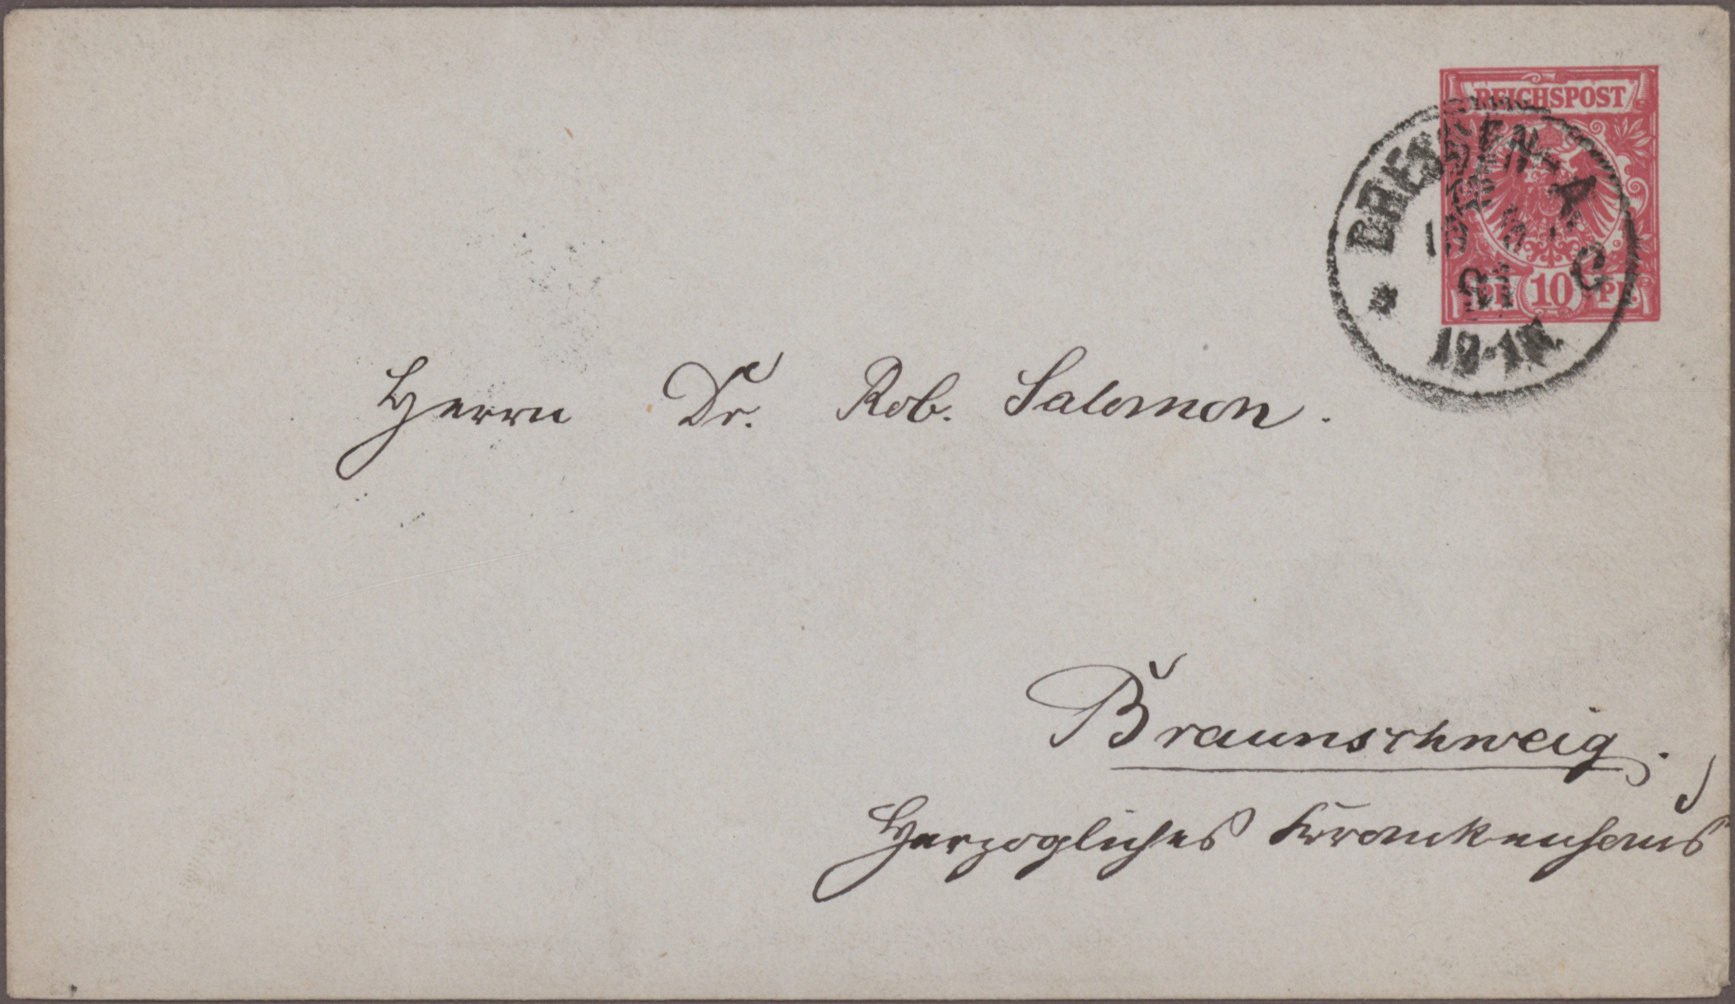 REICHSPOST
DRESDEN-A.
91
C
PF 10 PF
Herrn Dr. Rob. Salomon.
Braunschweig.
Herzogliches Krankenhaus